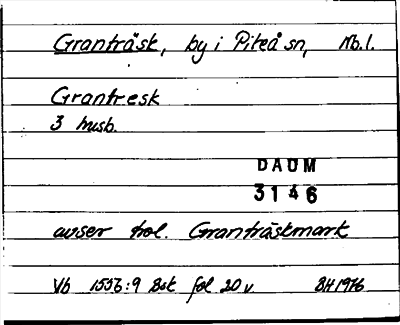 Granträsk, by i Piteå sn, Nb. l.
Grantresk
3 husb.
DAUM
3146
avser trol. Granträskmark
Vb 1553:9 Bsk fol 20 v. BH 1976